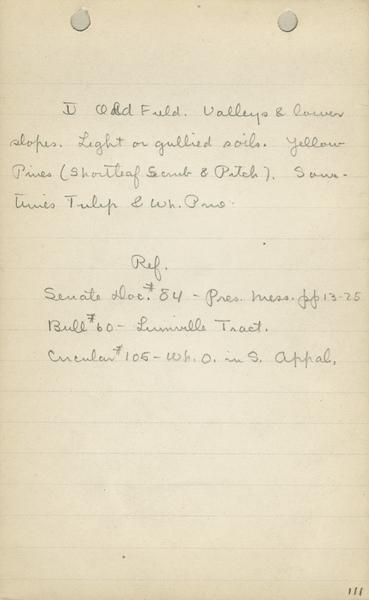 V Old Field. Valleys & lower
slopes. Light or gullied soils. Yellow
Pines (Shortleaf Scrub & Pitch). Some-
times Tulip & Wh. Pine.
Ref.
Senate Doc. #84 - Pres. Mess. pp 13-25
Bull #60 - Linnville Tract.
Circular #105 - Wh. O. in S. Appal.
111